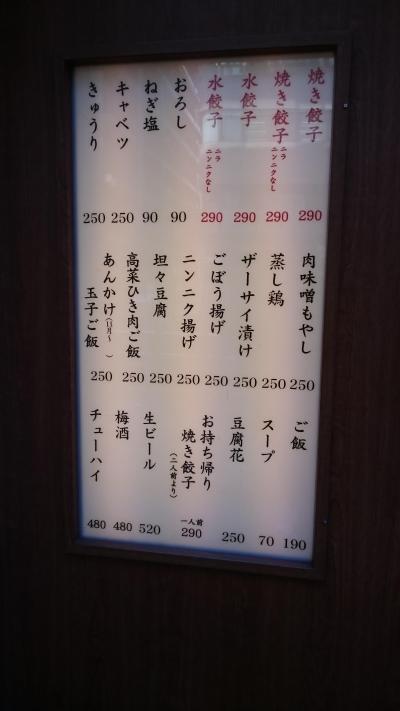 焼き餃子 290
焼き餃子 ニラ ニンニクなし 290
水餃子 290
水餃子 ニラ ニンニクなし 290
おろし 90
ねぎ塩 90
キャベツ 250
きゅうり 250
肉味噌もやし 250
蒸し鶏 250
ザーサイ漬け 250
ごぼう揚げ 250
ニンニク揚げ 250
坦々豆腐 250
高菜ひき肉ご飯 250
あんかけ(11月〜 )
玉子ご飯 250
ご飯 190
スープ 70
豆腐花 250
お持ち帰り
焼き餃子
(二人前より)
一人前
290
生ビール 520
梅酒 480
チューハイ 480